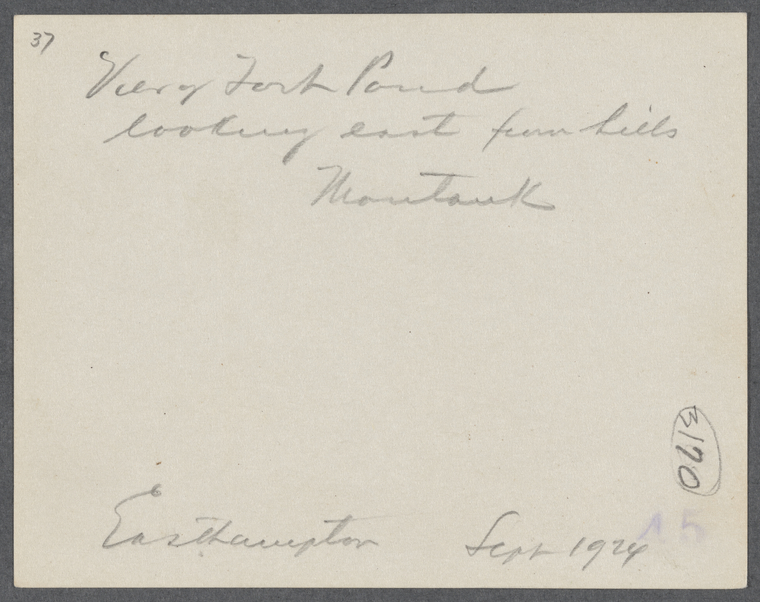 37
View of Fort Pond
looking east from hills
Montauk
3170
Easthampton Sept 1924
15